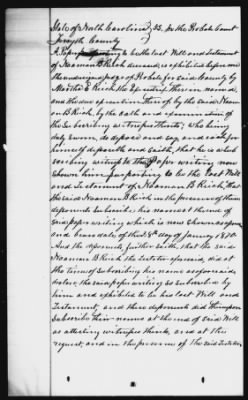 State of North Carolina } SS. In the Probate Court
Forsyth County
A Paper purporting to be the last Will and Testament
of Naaman B Reich deceased, is exhibited before me
the undersigned Judge of Probate for said County by
Martha E Reich the Executrix therein named,
and the due execution thereof by the said Naam
an B Reich, by the oath and examination of
the Subscribing witnesses thereto; who being
duly sworn, do depose and say, and each for
himself deposeth and saith, that he is a Sub
scribing witness to the Paper writing now
shown him, purporting to be the last Will
and Testament of Naaman B Reich, that
the said Naaman B Reich in the presence of these
deponents Subscribed his name at the end of
said paper writing which is now shown as afores
and bears date of the 18th day of January 18
And the deponents further saith, that the said
Naaman B Reich the testator aforesaid, did at
the time of Subscribing his name as aforesaid
declare the said paper writing so Subscribed by
him and exhibited to be his last Will and
Testament, and these deponents did thereupon
Subscribe their names at the end of said Will
as attesting witnesses thereto, and at the
request, and in the presence of the said Testator